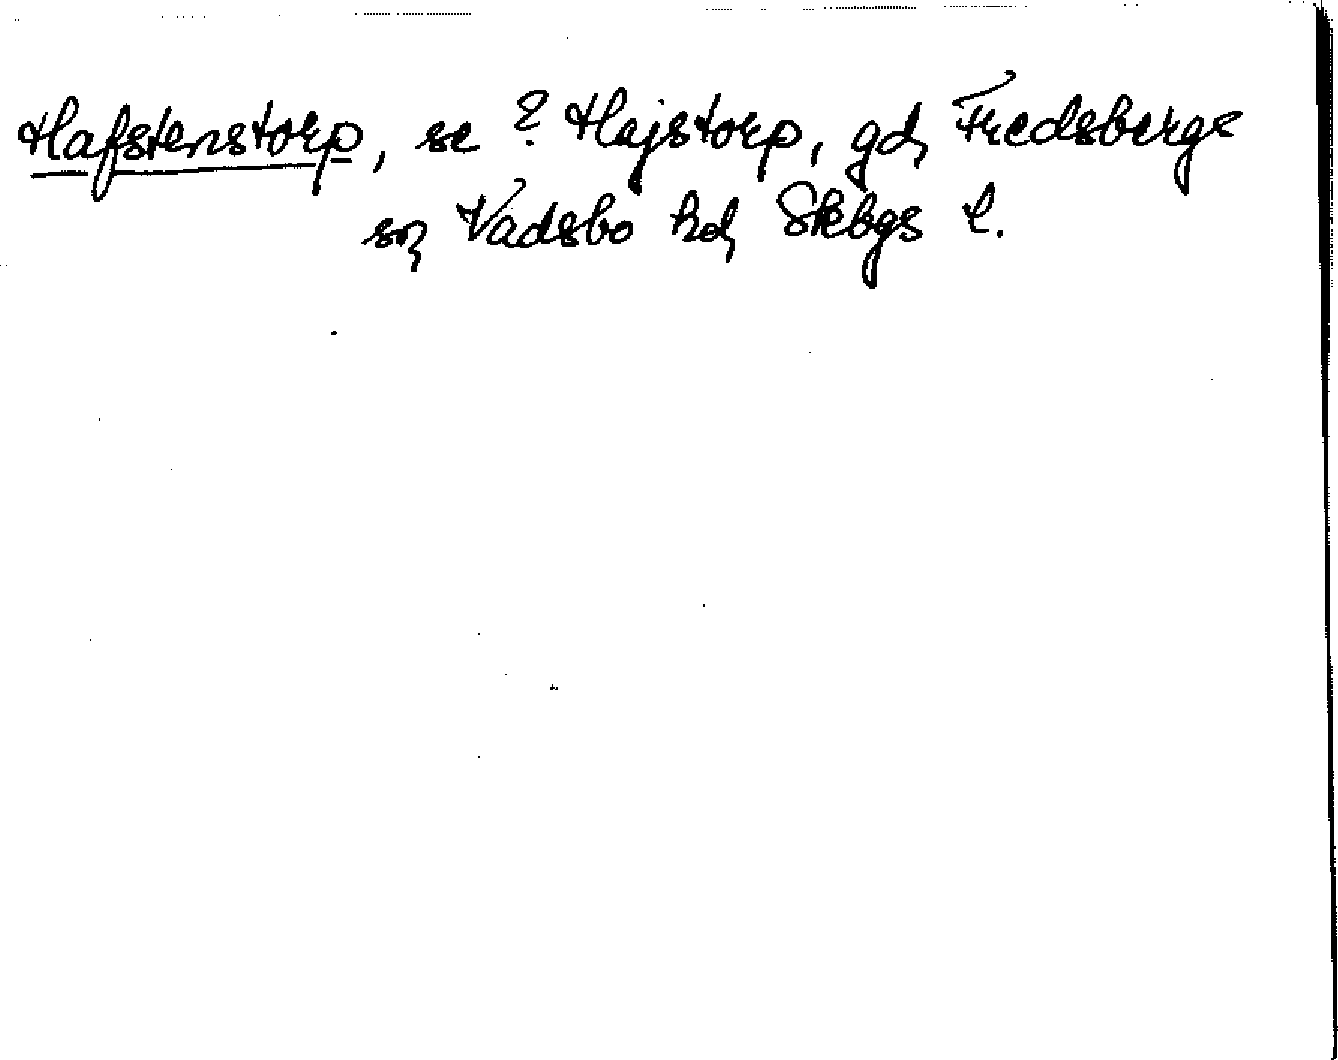 Hafstenstorp, se ? Hajstorp, gd, Fredsbergs
sn, Vadsbo hd, Skbgs l.